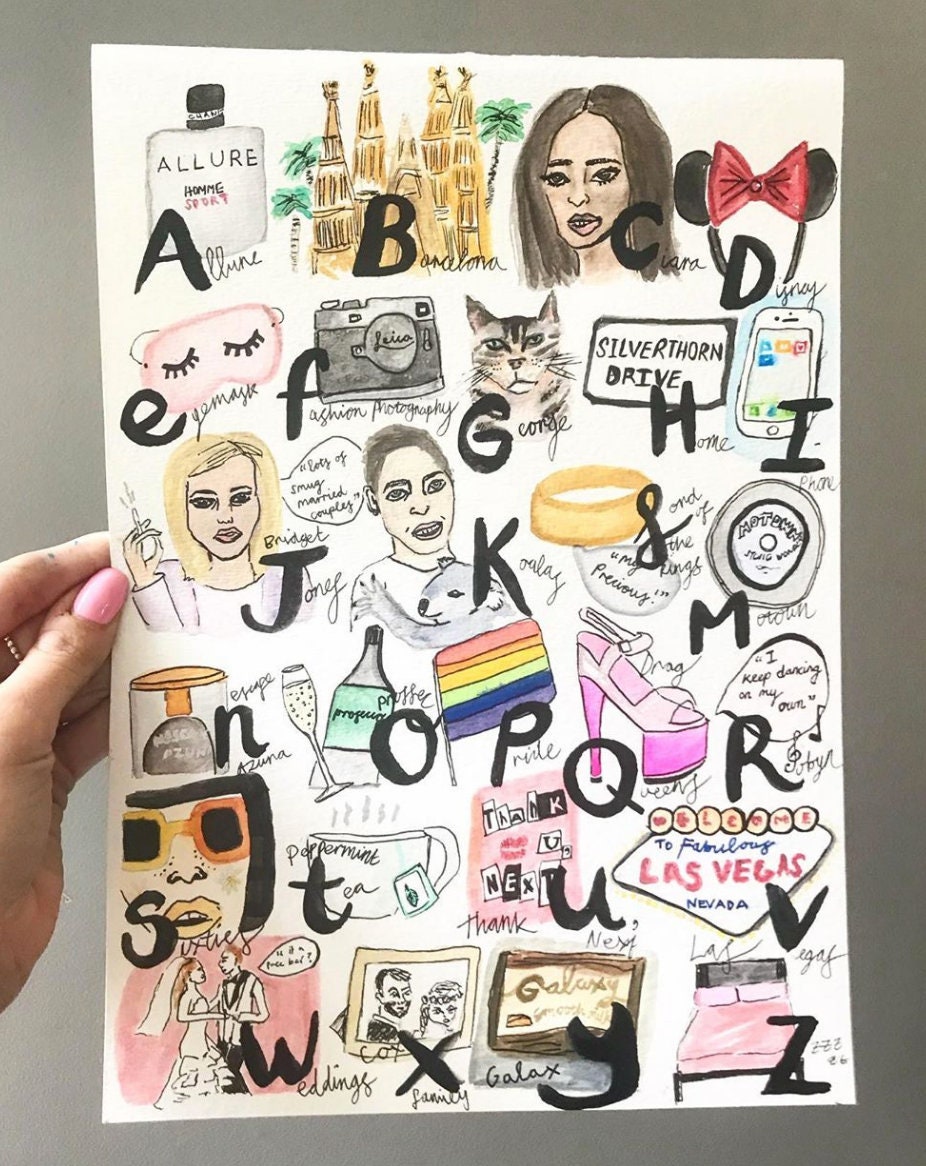 CHANEL
ALLURE
HOMME
SPORT
Allure
Barcelona
Ciara
Disney
eyemask
Leica
fashion Photography
George
SILVERTHORN
DRIVE
Home
I-
Phone
"lots of
smug
married
couples"
Bridget
Jones
Koalas
Lord of
the
Rings
"my
precious!"
MOTOWN
Motown
escape
n
Azuna
prosecco
O
Pride
Drag
Queens
"I
keep dancing
on my
own"
Robyn
Sixties
Peppermint
tea
Thank
U,
NEXT
thank
u,
Next
WELCOME
TO Fabulous
LAS VEGAS
NEVADA
Las
Vegas
"is it a
free bar?"
Weddings
Cox
family
Galaxy
smooth milk
Galaxy
Z
ZZZ
26